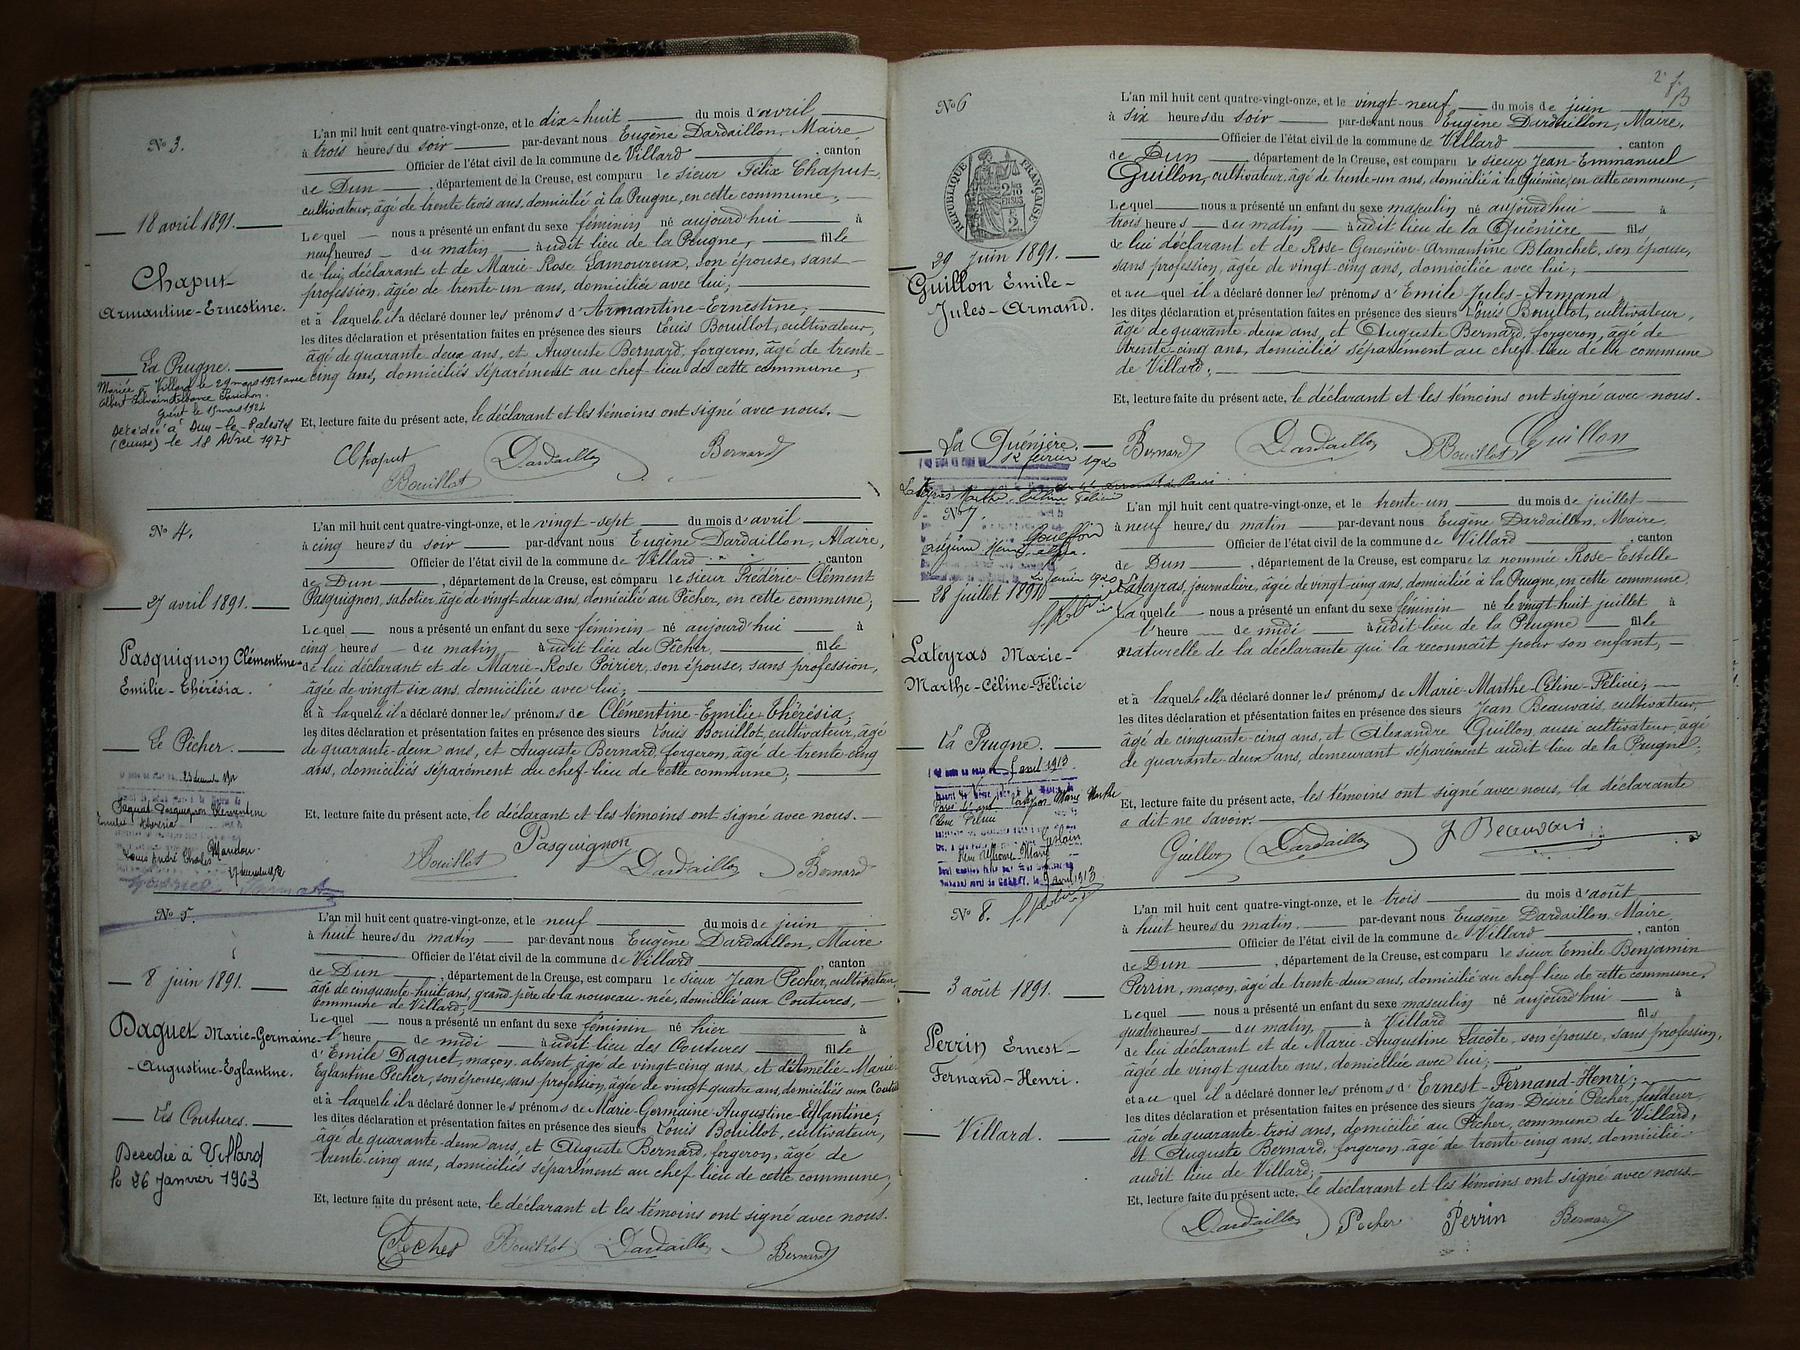 Nº 3.
18 avril 1891.
Chaput
Armantine-Ernestine.
La Prugne.
Mariée à Villard le 29 mars 1921 avec
Albert
Guéret le 15 mars 1921
Décédée à Dun-le-Palestel
(Creuse) le 18 Avril 1975
L'an mil huit cent quatre-vingt-onze, et le dix-huit du mois d'avril
à trois heures du soir par-devant nous Eugène Dardaillon, Maire,
Officier de l'état civil de la commune de Villard, canton
de Dun, département de la Creuse, est comparu le sieur Félix Chaput,
cultivateur, âgé de trente trois ans, domicilié à la Prugne, en cette commune;
Lequel nous a présenté un enfant du sexe féminin né aujourd'hui à
neuf heures du matin audit lieu de la Prugne, fille
de lui déclarant et de Marie-Rose Lamoureux, son épouse, sans
profession, âgée de trente-un ans, domiciliée avec lui;
et à laquelle il a déclaré donner les prénoms d'Armantine-Ernestine,
les dites déclaration et présentation faites en présence des sieurs Louis Bouillot, cultivateur,
âgé de quarante deux ans, et Auguste Bernard, forgeron, âgé de trente-
cinq ans, domiciliés séparément au chef-lieu de cette commune;
Et, lecture faite du présent acte, le déclarant et les témoins ont signé avec nous.
Chaput Dardaillon Bernard
Bouillot
Nº 4.
27 avril 1891.
Pasquignon Clémentine-
Emilie-Thérésia.
Le Pêcher.
Pasquignon Clémentine
Emilie Thérésia
Louis André Charles
L'an mil huit cent quatre-vingt-onze, et le vingt-sept du mois d'avril
à cinq heures du soir par-devant nous Eugène Dardaillon, Maire,
Officier de l'état civil de la commune de Villard, canton
de Dun, département de la Creuse, est comparu le sieur Frédéric-Clément
Pasquignon, sabotier, âgé de vingt-deux ans, domicilié au Pêcher, en cette commune;
Lequel nous a présenté un enfant du sexe féminin né aujourd'hui à
cinq heures du matin audit lieu du Pêcher, fille
de lui déclarant et de Marie-Rose Poirier, son épouse, sans profession,
âgée de vingt six ans, domiciliée avec lui;
et à laquelle il a déclaré donner les prénoms de Clémentine-Emilie-Thérésia,
les dites déclaration et présentation faites en présence des sieurs Louis Bouillot, cultivateur, âgé
de quarante-deux ans, et Auguste Bernard, forgeron, âgé de trente-cinq
ans, domiciliés séparément au chef-lieu de cette commune;
Et, lecture faite du présent acte, le déclarant et les témoins ont signé avec nous.
Bouillot Pasquignon Dardaillon Bernard
Nº 5.
8 juin 1891.
Daguet Marie-Germaine-
-Augustine-Eglantine.
Les Coutures.
Décédée à Villard
le 26 janvier 1963
L'an mil huit cent quatre-vingt-onze, et le neuf du mois de juin
à huit heures du matin par devant nous Eugène Dardaillon, Maire
Officier de l'état civil de la commune de Villard canton
de Dun, département de la Creuse, est comparu le sieur Jean Pecher, cultivateur
âgé de cinquante-huit ans, grand-père de la nouveau-née, domicilié aux Coutures,
commune de Villard;
Lequel nous a présenté un enfant du sexe féminin né hier à
l'heure de midi audit lieu des Coutures fille
d'Emile Daguet, maçon, absent, âgé de vingt-cinq ans, et d'Amélie-Marie-
Eglantine Pecher, son épouse, sans profession, âgée de vingt quatre ans, domiciliés aux Coutures
et à laquelle il a déclaré donner les prénoms de Marie-Germaine-Augustine-Eglantine;
les dites déclaration et présentation faites en présence des sieurs Louis Bouillot, cultivateur,
âgé de quarante-deux ans, et Auguste Bernard, forgeron, âgé de
trente-cinq ans, domiciliés séparément au chef lieu de cette commune;
Et, lecture faite du présent acte, le déclarant et les témoins ont signé avec nous.
Pecher Bouillot Dardaillon Bernard
Nº 6
RÉPUBLIQUE FRANÇAISE
29 juin 1891.
Guillon Emile-
Jules-Armand.
La Quénière.
12 février 1920
Lateyras Marthe Céline Félicie
L'an mil huit cent quatre-vingt-onze, et le vingt-neuf du mois de juin
à six heures du soir par-devant nous Eugène Dardaillon, Maire,
Officier de l'état civil de la commune de Villard, canton
de Dun, département de la Creuse, est comparu le sieur Jean-Emmanuel
Guillon, cultivateur, âgé de trente-un ans, domicilié à la Quénière, en cette commune,
Lequel nous a présenté un enfant du sexe masculin né aujourd'hui à
trois heures du matin audit lieu de la Quénière fils
de lui déclarant et de Rose-Geneviève-Armantine Blanchet, son épouse,
sans profession, âgée de vingt-cinq ans, domiciliée avec lui;
et au quel il a déclaré donner les prénoms d'Emile-Jules-Armand,
les dites déclaration et présentation faites en présence des sieurs Louis Bouillot, cultivateur,
âgé de quarante-deux ans, et Auguste Bernard, forgeron, âgé de
trente-cinq ans, domiciliés séparément au chef-lieu de la commune
de Villard;
Et, lecture faite du présent acte, le déclarant et les témoins ont signé avec nous.
Bernard Dardaillon Bouillot Guillon
Nº 7.
28 juillet 1891.
Lateyras Marie-
Marthe-Céline-Félicie
La Prugne.
avril 1913
Lateyras Marie Marthe
Céline Félicie
9 avril 1913
L'an mil huit cent quatre-vingt-onze, et le trente-un du mois de juillet
à neuf heures du matin par-devant nous Eugène Dardaillon, Maire,
Officier de l'état civil de la commune de Villard, canton
de Dun, département de la Creuse, est comparue la nommée Rose-Estelle
Lateyras, journalière, âgée de vingt-cinq ans, domiciliée à la Prugne, en cette commune
Laquelle nous a présenté un enfant du sexe féminin né le vingt-huit juillet à
l'heure de midi audit lieu de la Prugne fille
naturelle de la déclarante qui la reconnaît pour son enfant,
et à laquelle elle a déclaré donner les prénoms de Marie-Marthe-Céline-Félicie;
les dites déclaration et présentation faites en présence des sieurs Jean Beauvais, cultivateur
âgé de cinquante-cinq ans, et Alexandre Guillon, aussi cultivateur, âgé
de quarante-deux ans, demeurant séparément audit lieu de la Prugne;
Et, lecture faite du présent acte, les témoins ont signé avec nous, la déclarante
a dit ne savoir.
Guillon Dardaillon J Beauvais
Nº 8.
3 août 1891.
Perrin Ernest-
Fernand-Henri.
Villard.
L'an mil huit cent quatre-vingt-onze, et le trois du mois d'août
à huit heures du matin par-devant nous Eugène Dardaillon, Maire
Officier de l'état civil de la commune de Villard, canton
de Dun, département de la Creuse, est comparu le sieur Emile Benjamin
Perrin, maçon, âgé de trente-deux ans, domicilié au chef-lieu de cette commune,
Lequel nous a présenté un enfant du sexe masculin né aujourd'hui à
quatre heures du matin, à Villard fils
de lui déclarant et de Marie-Augustine Lacôte, son épouse, sans profession,
âgée de vingt quatre ans, domiciliée avec lui;
et au quel il a déclaré donner les prénoms d'Ernest-Fernand-Henri;
les dites déclaration et présentation faites en présence des sieurs Jean-Désiré Pecher, fendeur,
âgé de quarante-trois ans, domicilié au Pêcher, commune de Villard,
et Auguste Bernard, forgeron, âgé de trente-cinq ans, domicilié
audit lieu de Villard;
Et, lecture faite du présent acte, le déclarant et les témoins ont signé avec nous.
Dardaillon Pecher Perrin Bernard